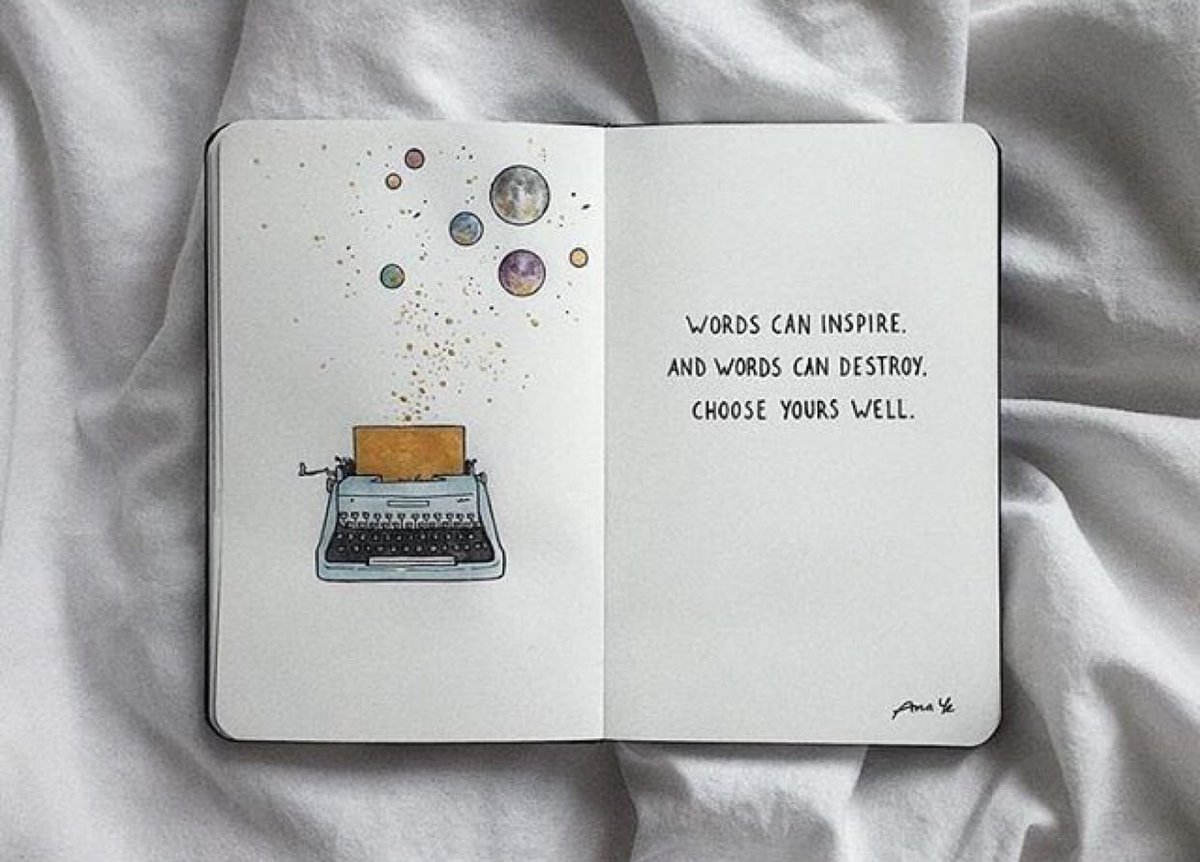 WORDS CAN INSPIRE.
AND WORDS CAN DESTROY.
CHOOSE YOURS WELL.
Ana Ye